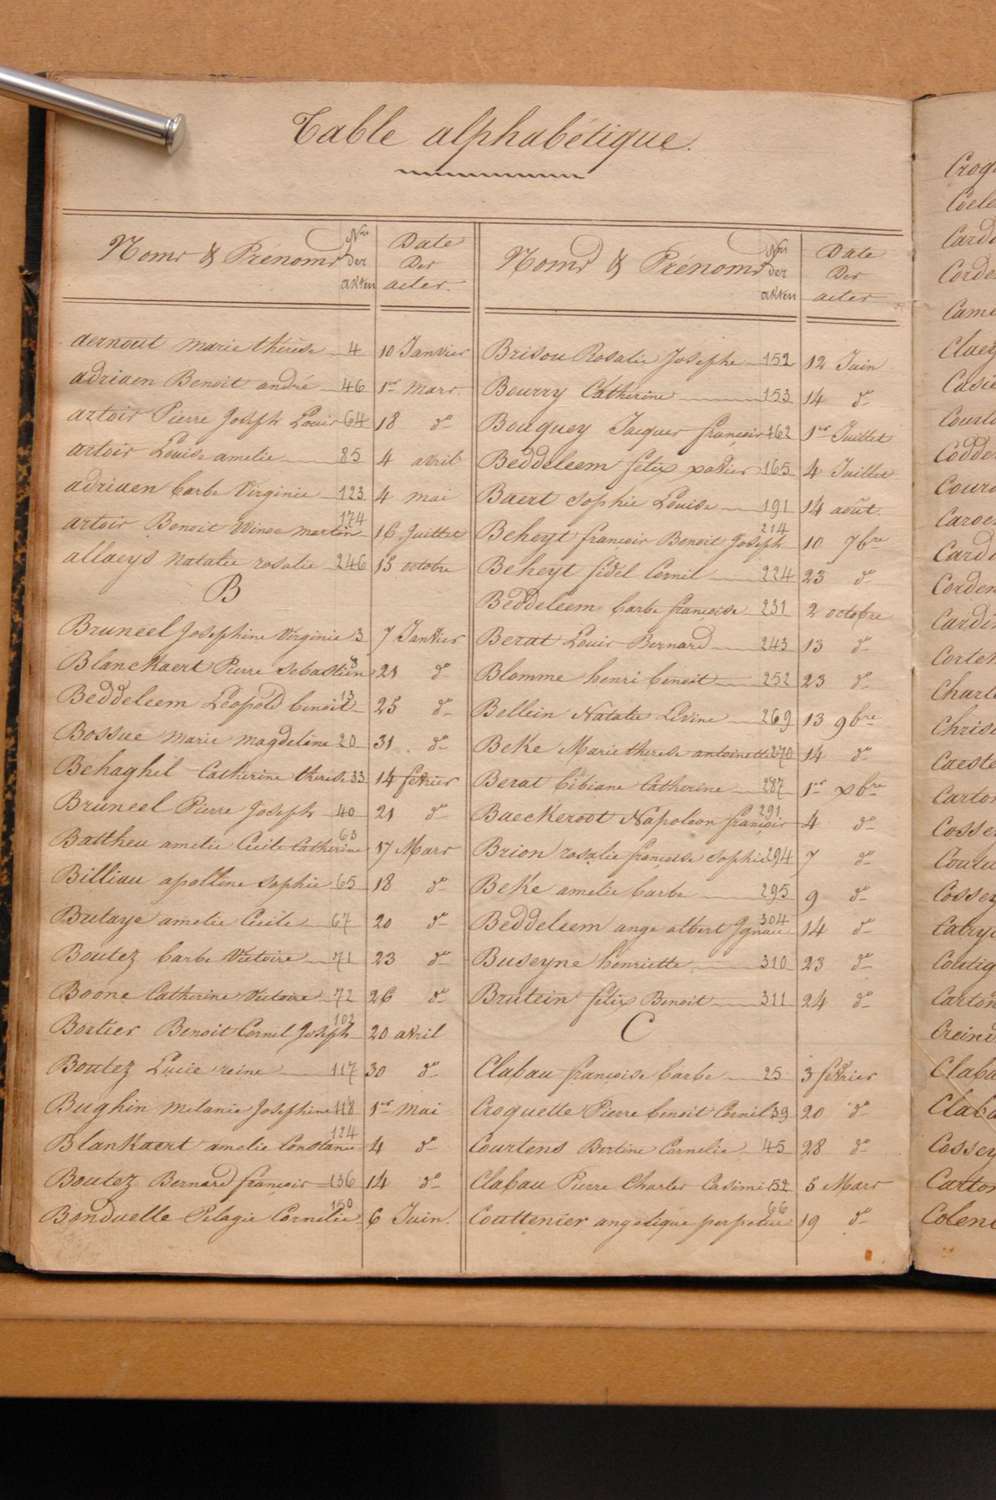 Table alphabétique.
Noms & Prénoms Nros der akten Date Des actes.
aernout marie thérèse 4 10 Janvier
adriaen Benoit andré 46 1er mars
artois Pierre Joseph Louis 64 18 do
artois Louise amelie 85 4 avril
adriaen barbe Virginie 123 4 mai
artois Benoit Winoc martin 174 16 Juillet
allaeys natalie rosalie 246 15 octobre
B
Bruneel Josephine Virginie 3 7 Janvier
Blanckaert Pierre Sebastien 8 21 do
Beddeleem Léopold benoit 13 25 do
Bossue marie magdelène 20 31 do
Behaghel Catherine therese 33 14 fevrier
Bruneel Pierre Joseph 40 21 do
Battheu amelie Cécile Catherine 63 17 Mars
Billiau apolline sophie 65 18 do
Bulaye amelie Cécile 67 20 do
Boutez barbe Victoire 71 23 do
Boone Catherine Victoire 72 26 do
Bortier Benoit Cornil Joseph 102 20 avril
Boutez Lucie reine 117 30 do
Bughin melanie Josephine 118 1er mai
Blankaert amelie Constance 124 4 do
Boutez Bernard françois 136 14 do
Bonduelle Pelagie Cornelie 150 6 Juin
Noms & Prénoms Nros der akten Date Des actes
Brisou Rosalie Josephe 152 12 Juin
Bourry Catherine 153 14 do
Bouquey Jacques françois 162 1er Juillet
Beddeleem félix xavier 165 4 Juillet
Baert Sophie Louise 191 14 août
Beheyt françois Benoit Joseph 214 10 7bre
Beheyt fidel Cornil 224 23 do
Beddeleem barbe françoise 231 2 octobre
Berat Louis Bernard 243 13 do
Blomme henri benoit 252 23 do
Bellein Natalie Levine 269 13 9bre
Beke Marie therese antoinette 270 14 do
Berat Bibiane Catherine 287 1er xbre
Baeckeroot Napoléon françois 291 4 do
Brion rosalie françoise sophie 294 7 do
Beke amelie barbe 295 9 do
Beddeleem ange albert Ignace 304 14 do
Buseyne henriette 310 23 do
Brutein félix Benoit 311 24 do
C
Clabau françoise barbe 25 3 février
Croquette Pierre benoit Cornil 39 20 do
Courtens Bertine Cornelie 45 28 do
Clabau Pierre Charles Casimi 52 5 Mars
Couttenier angelique perpetue 66 19 do